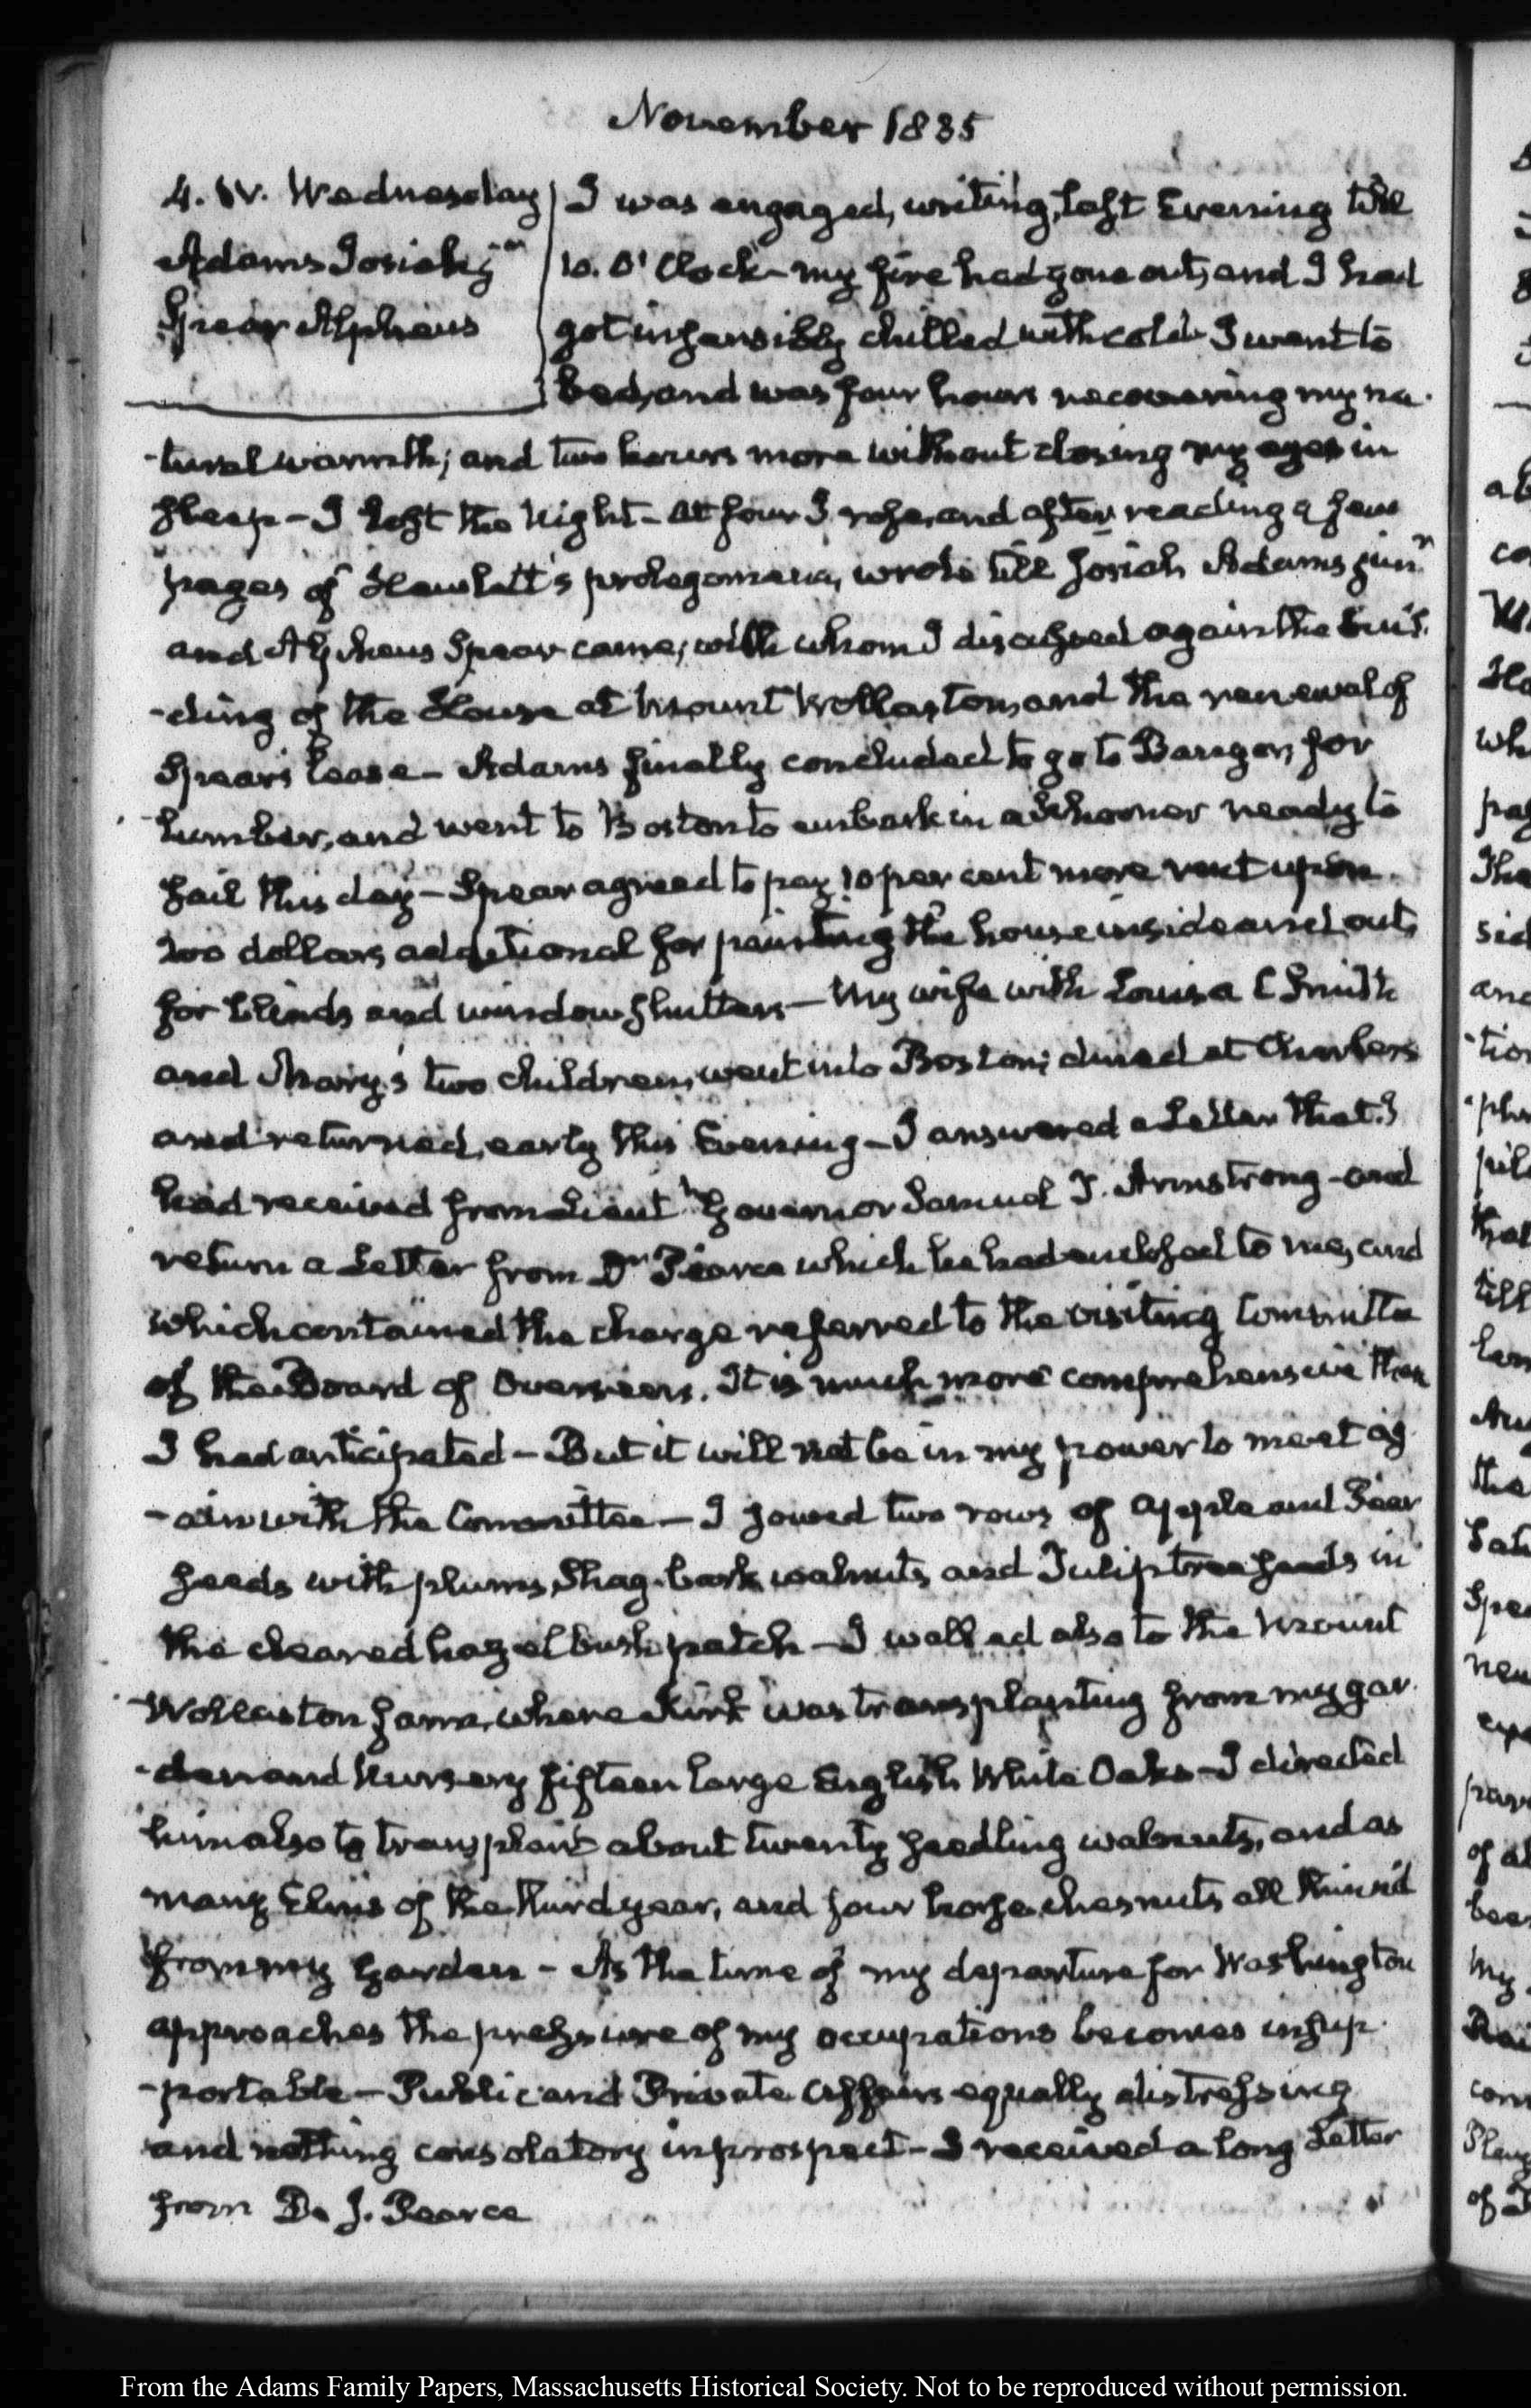 November 1835
4. IV. Wednesday
Adams Josiah jr.
Spear Alpheus
I was engaged, writing, last Evening till
10. O'Clock - my fire had gone out, and I had
got insensibly chilled with cold. I went to
bed, and was four hours recovering my na-
-tural warmth; and two hours more without closing my eyes in
sleep - I lost the Night - At four I rose, and after reading a few
pages of Hewlett's prolegomena, wrote till Josiah Adams junr.
and Alpheus Spear came; with whom I discussed again the buil-
-ding of the House at Mount Wollaston, and the renewal of
Spear's lease - Adams finally concluded to go to Bangor, for
lumber, and went to Boston to embark in a Schooner ready to
sail this day - Spear agreed to pay 10 per cent more rent upon
200 dollars additional for painting the house inside and out,
for blinds and window shutters - My wife with Louisa C Smith
and Mary's two children, went into Boston; dined at Charles's
and returned, early this Evening - I answered a Letter that I
had received from Lieutt. Governor Samuel T. Armstrong - and
return a Letter from Dr Pearce which he had enclosed to me, and
which contained the charge referred to the visiting Committee
of the Board of Overseers. It is much more comprehensive than
I had anticipated - But it will not be in my power to meet ag-
-ain with the Committee - I sowed two rows of Apple and Pear
seeds with plums, Shag-bark walnuts, and Tulip tree seeds in
the cleared hazel bush patch - I walked also to the Mount
Wollaston farm, where Kirk was transplanting from my gar-
-den and Nursery fifteen large English White Oaks - I directed
him also to transplant about twenty seedling walnuts, and as
many Elms of the third year, and four horse chesnuts all thinn'd
from my Garden - As the time of my departure for Washington
approaches the pressure of my occupations becomes insup-
-portable - Public and Private Affairs equally distressing
and nothing consolatory in prospect - I received a long Letter
from D. J. Pearce
From the Adams Family Papers, Massachusetts Historical Society. Not to be reproduced without permission.